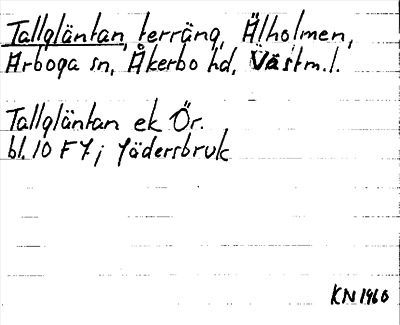 Tallgläntan, terräng, Älholmen,
Arboga sn, Åkerbo hd, Västm.l.
Tallgläntan ek Ör.
bl. 10 F 7 ; Jädersbruk
KN 1960